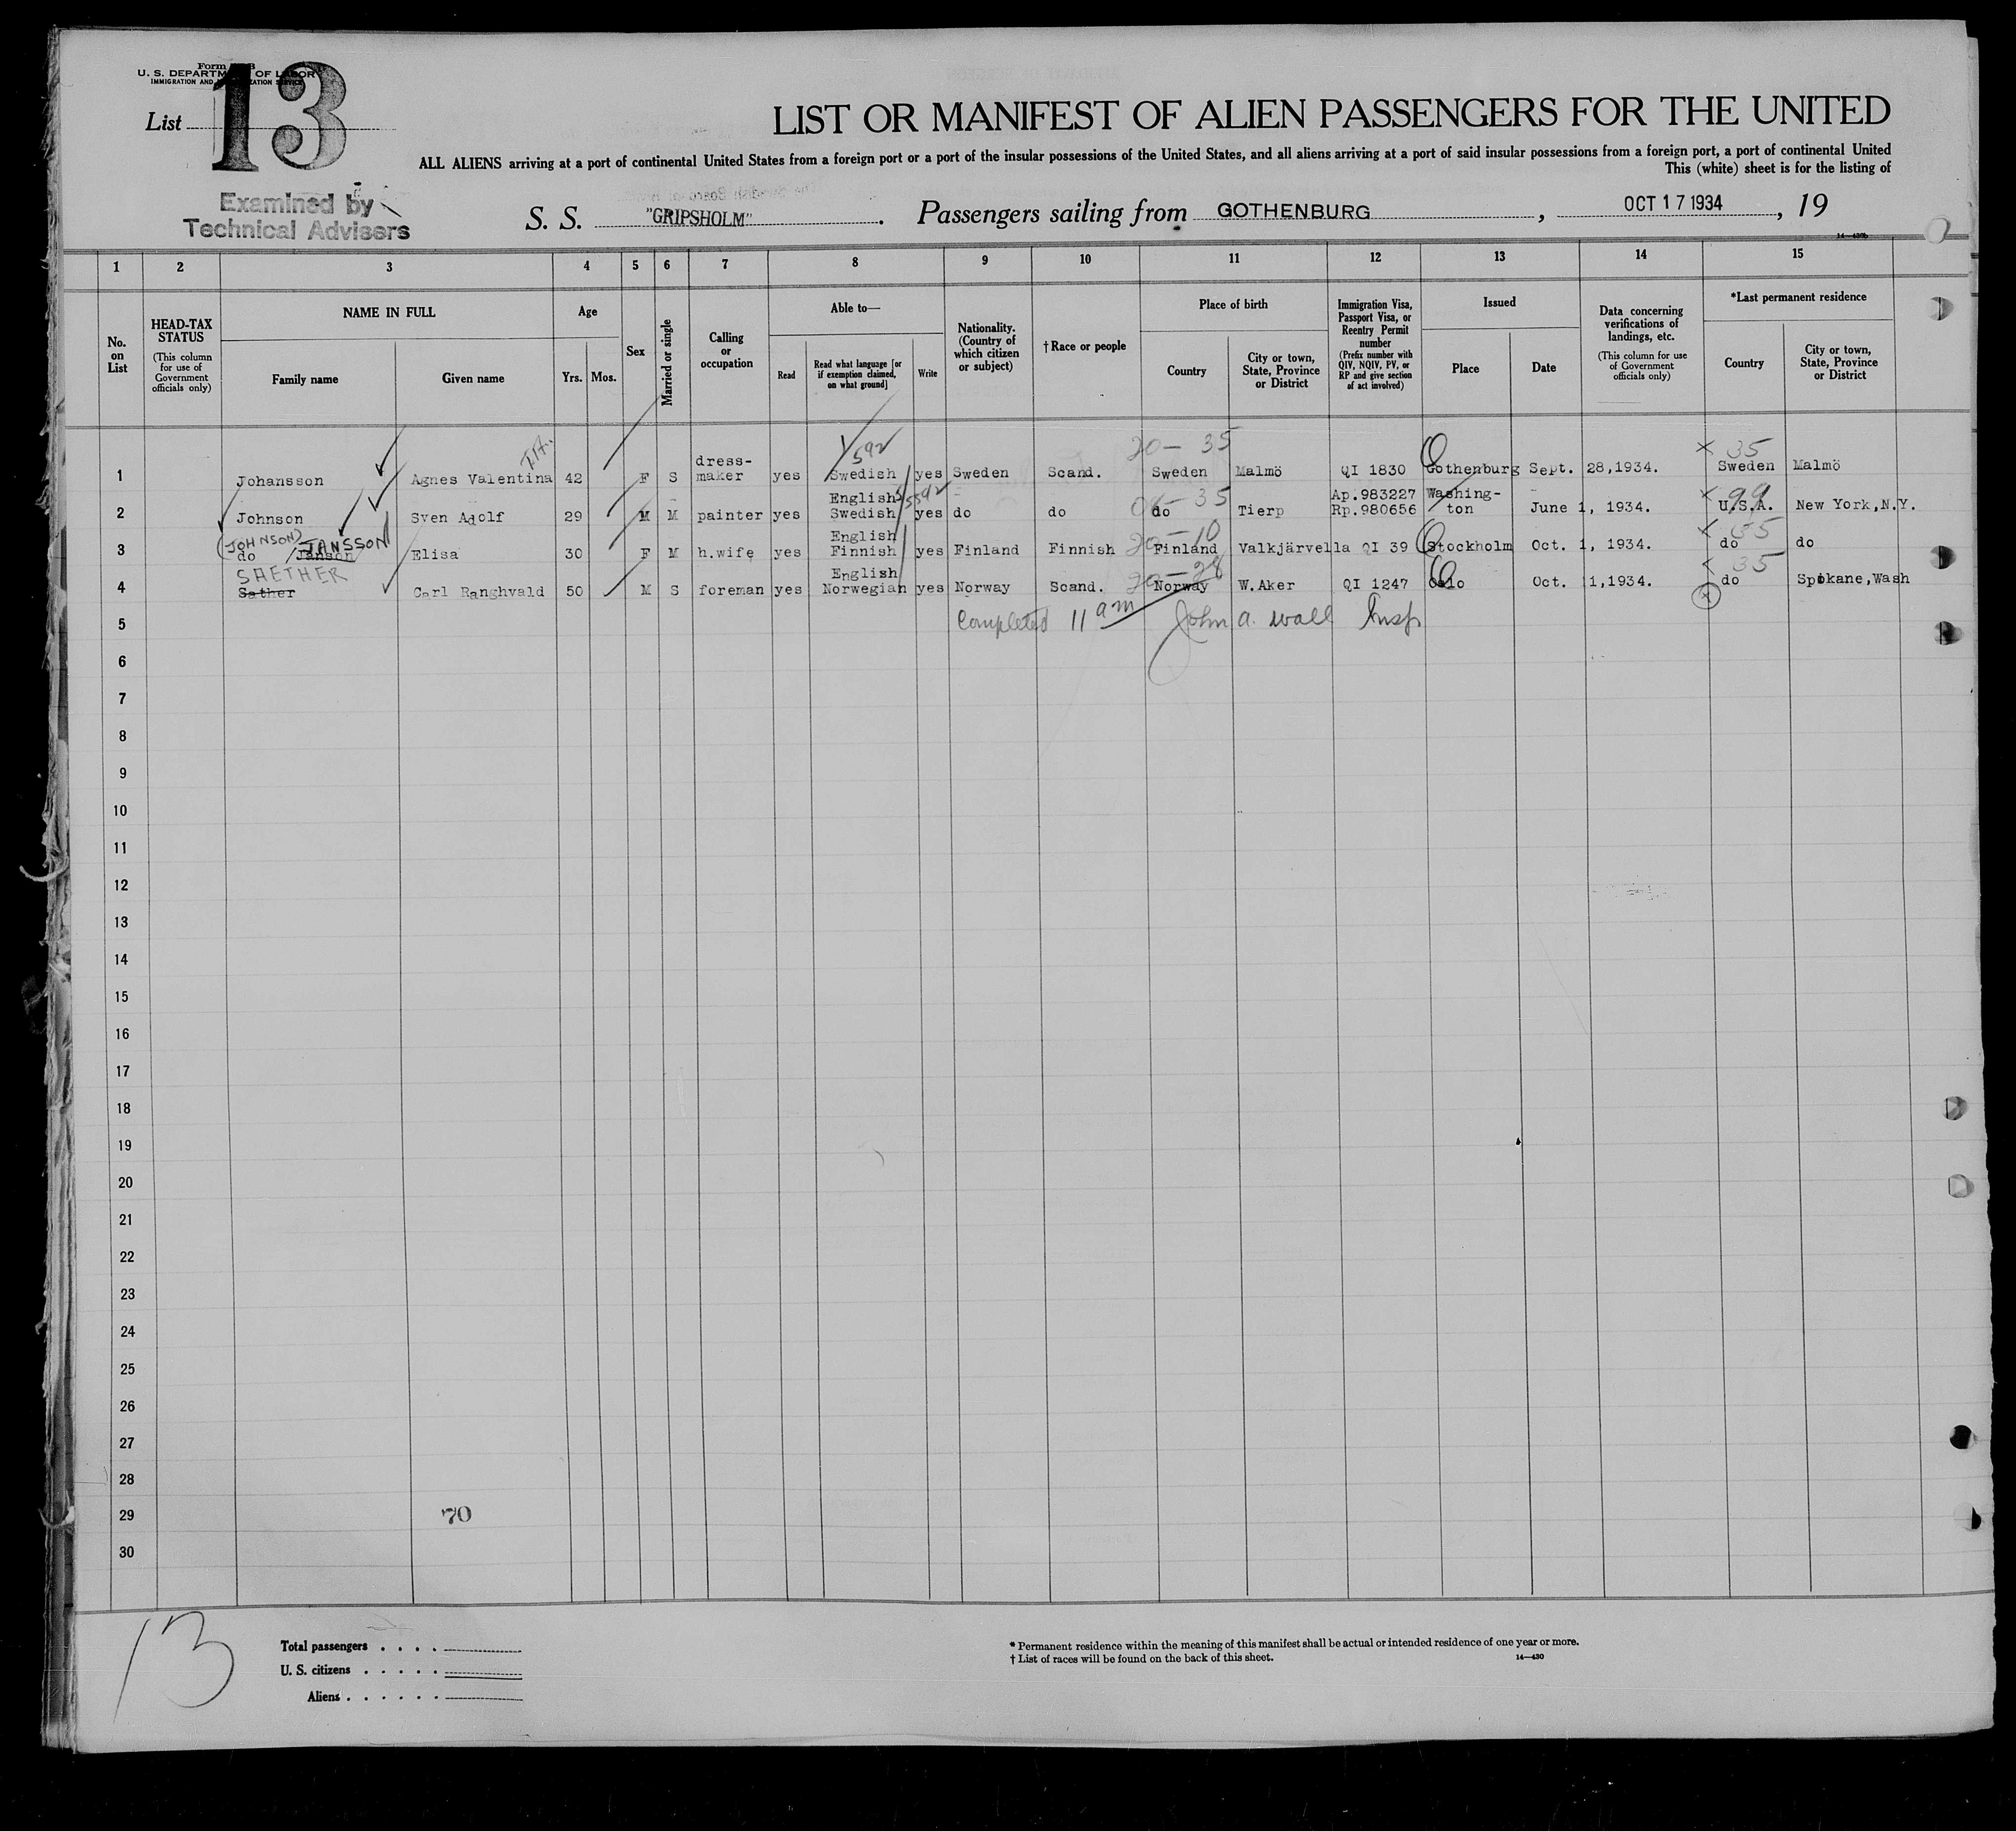 Form
U. S. DEPARTMENT OF LABOR
IMMIGRATION AND NATURALIZATION SERVICE
List 13
LIST OR MANIFEST OF ALIEN PASSENGERS FOR THE UNITED
ALL ALIENS arriving at a port of continental United States from a foreign port or a port of the insular possessions of the United States, and all aliens arriving at a port of said insular possessions from a foreign port, a port of continental United
This (white) sheet is for the listing of
Examined by
Technical Advisers
S. S. "GRIPSHOLM". Passengers sailing from GOTHENBURG, OCT 17 1934, 19
1 2 3 4 5 6 7 8 9 10 11 12 13 14 15
No. on List
HEAD-TAX STATUS
(This column for use of Government officials only)
NAME IN FULL
Family name
Given name
Age
Yrs. Mos.
Sex
Married or single
Calling or occupation
Able to—
Read
Read what language [or if exemption claimed, on what ground]
Write
Nationality. (Country of which citizen or subject)
† Race or people
Place of birth
Country
City or town, State, Province or District
Immigration Visa, Passport Visa, or Reentry Permit number
(Prefix number with QIV, NQIV, PV, or RP and give section of act involved)
Issued
Place
Date
Data concerning verifications of landings, etc.
(This column for use of Government officials only)
*Last permanent residence
Country
City or town, State, Province or District
20 - 35 × 35
1 Johansson Agnes Valentina 42 F S dress-maker yes Swedish yes Sweden Scand. Sweden Malmö QI 1830 Gothenburg Sept. 28,1934. Sweden Malmö
35 × 99
2 Johnson Sven Adolf 29 M M painter yes English Swedish yes do do do Tierp Ap.983227 Rp.980656 Washing-ton June 1, 1934. U.S.A. New York,N.Y.
20 - 10 35
3 (JOHNSON) do Janson JANSSON Elisa 30 F M h.wife yes English Finnish yes Finland Finnish Finland Valkjärvella QI 39 Stockholm Oct. 1, 1934. do do
20 - 28 35
4 SAETHER Sather Carl Ranghvald 50 M S foreman yes English Norwegian yes Norway Scand. Norway W.Aker QI 1247 Oslo Oct. 11,1934. do Spokane,Wash
5 Completed 11 am John A. Wall Insp
6
7
8
9
10
11
12
13
14
15
16
17
18
19
20
21
22
23
24
25
26
27
28
29 70
30
13
Total passengers . . . .
U. S. citizens . . . . .
Aliens . . . . . .
* Permanent residence within the meaning of this manifest shall be actual or intended residence of one year or more.
† List of races will be found on the back of this sheet.
14—430